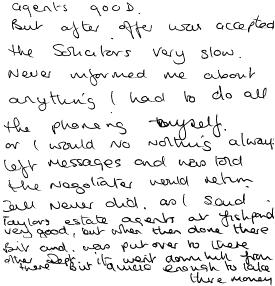 agents good.
But after offer was accepted
the Solicitors very slow.
Never informed me about
anything I had to do all
the phoning myself.
or I would no nothing always
left messages and was told
the Negotiater would return
Call Never did. as I said
Taylors estate agents at fishponds
very good, but when then done there
bit and was put over to there
other Dept. it went down hill from
there But quick enough to take
there money